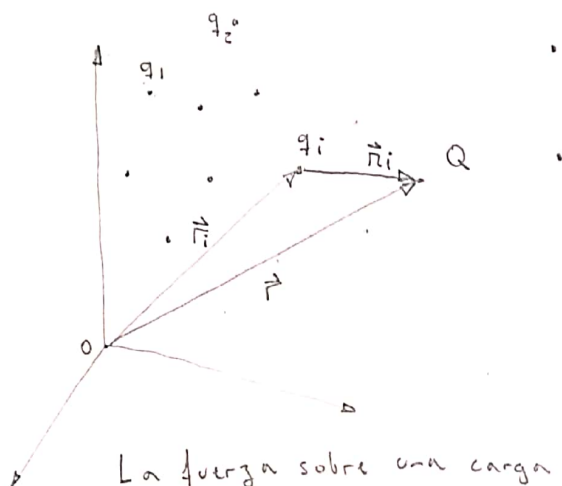 q₂
q₁
qᵢ
r⃗ᵢ
Q
r⃗ᵢ
r⃗
0
La fuerza sobre una carga